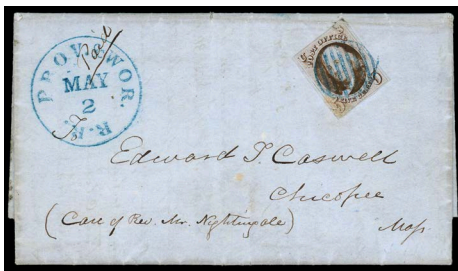 PROV. & WOR. R.R.
MAY
2
Paid
POST OFFICE
Edward T. Caswell
Chicopee
(Care of Rev. Mr. Nightingale)
Mass